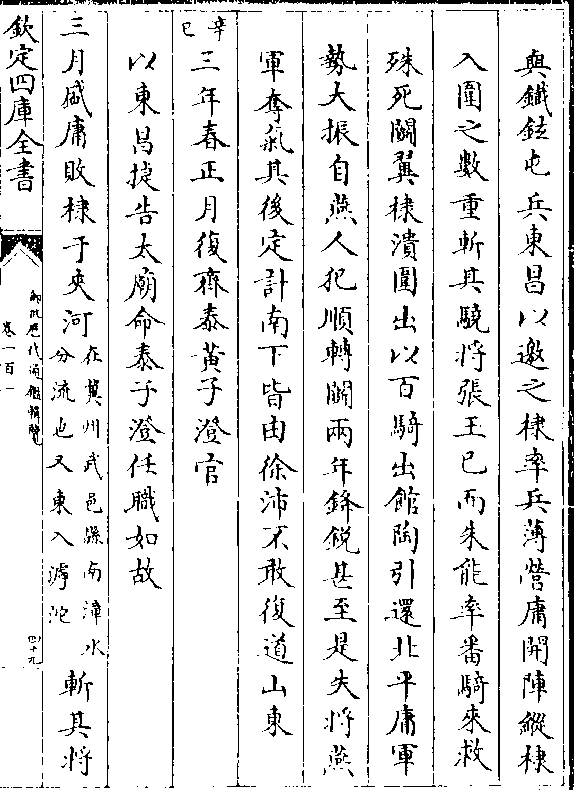 與鐵鉉屯兵東昌以邀之棣率兵薄營庸開陣縱棣
入圍之數重斬其驍將張玉已而朱能率番騎來救
殊死鬭翼棣潰圍出以百騎出館陶引還北平庸軍
勢大振自燕人犯順轉鬭兩年鋒銳甚至是失將燕
軍奪氣其後定計南下皆由徐沛不敢復道山東
辛巳
三年春正月復齊泰黄子澄官
以東昌捷告太廟命泰子澄任職如故
三月盛庸敗棣于夾河
在冀州武邑縣南漳水
分流也又東入滹沱
斬其将
欽定四庫全書
御批歷代通鑑輯覽
卷一百一
四十九